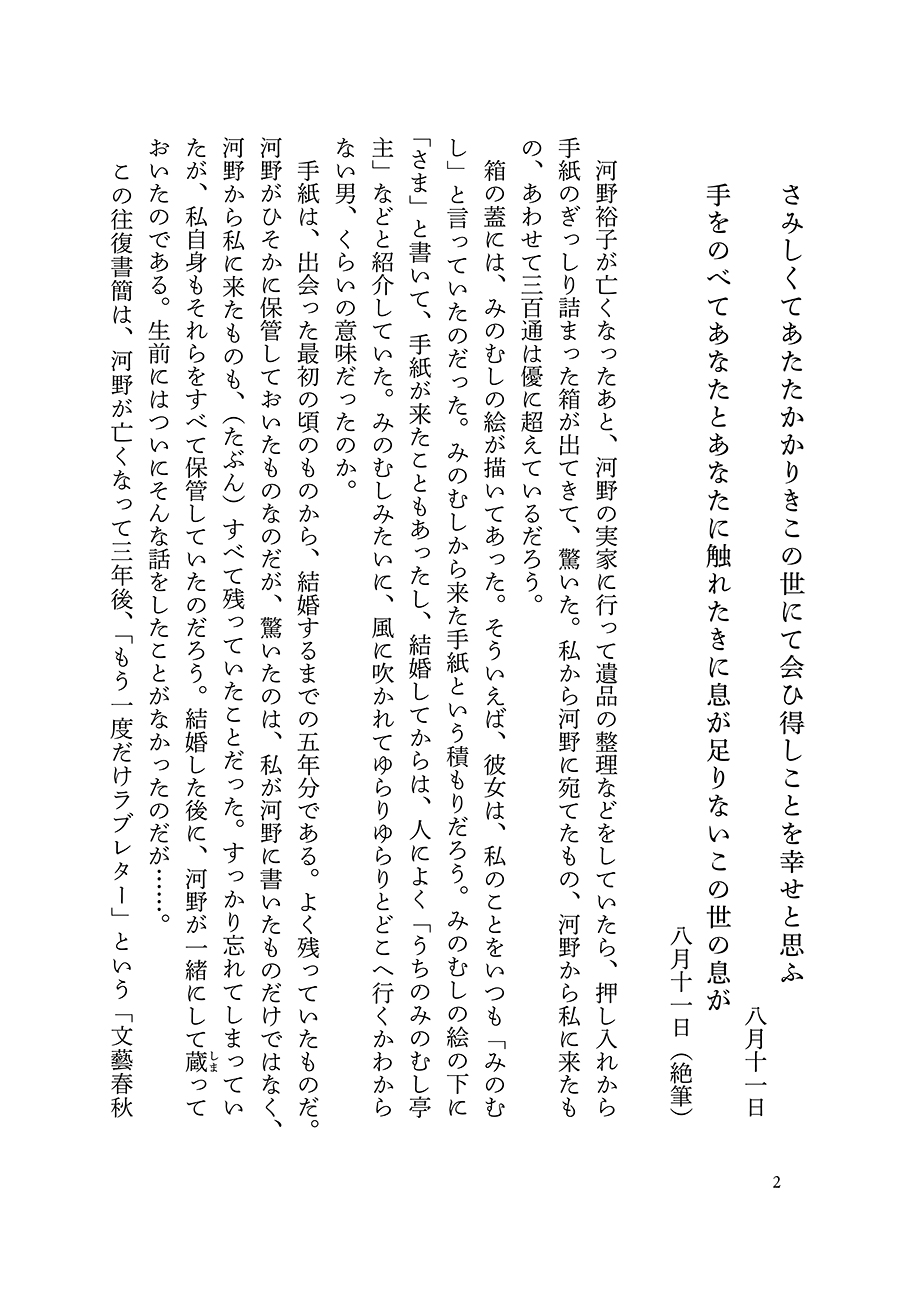 さみしくてあたたかかりきこの世にて会ひ得しことを幸せと思ふ
八月十一日
手をのべてあなたとあなたに触れたきに息が足りないこの世の息が
八月十一日（絶筆）
河野裕子が亡くなったあと、河野の実家に行って遺品の整理などをしていたら、押し入れから
手紙のぎっしり詰まった箱が出てきて、驚いた。私から河野に宛てたもの、河野から私に来たも
の、あわせて三百通は優に超えているだろう。
箱の蓋には、みのむしの絵が描いてあった。そういえば、彼女は、私のことをいつも「みのむ
し」と言っていたのだった。みのむしから来た手紙という積もりだろう。みのむしの絵の下に
「さま」と書いて、手紙が来たこともあったし、結婚してからは、人によく「うちのみのむし亭
主」などと紹介していた。みのむしみたいに、風に吹かれてゆらりゆらりとどこへ行くかわから
ない男、くらいの意味だったのか。
手紙は、出会った最初の頃のものから、結婚するまでの五年分である。よく残っていたものだ。
河野がひそかに保管しておいたものなのだが、驚いたのは、私が河野に書いたものだけではなく、
河野から私に来たものも、（たぶん）すべて残っていたことだった。すっかり忘れてしまってい
たが、私自身もそれらをすべて保管していたのだろう。結婚した後に、河野が一緒にして蔵しまって
おいたのである。生前にはついにそんな話をしたことがなかったのだが……。
この往復書簡は、河野が亡くなって三年後、「もう一度だけラブレター」という「文藝春秋
2